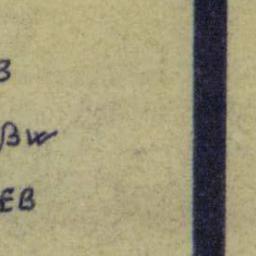 B
Bw
EB